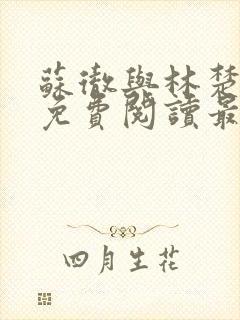 蘇徹與林楚
免費閱讀最
四月生花